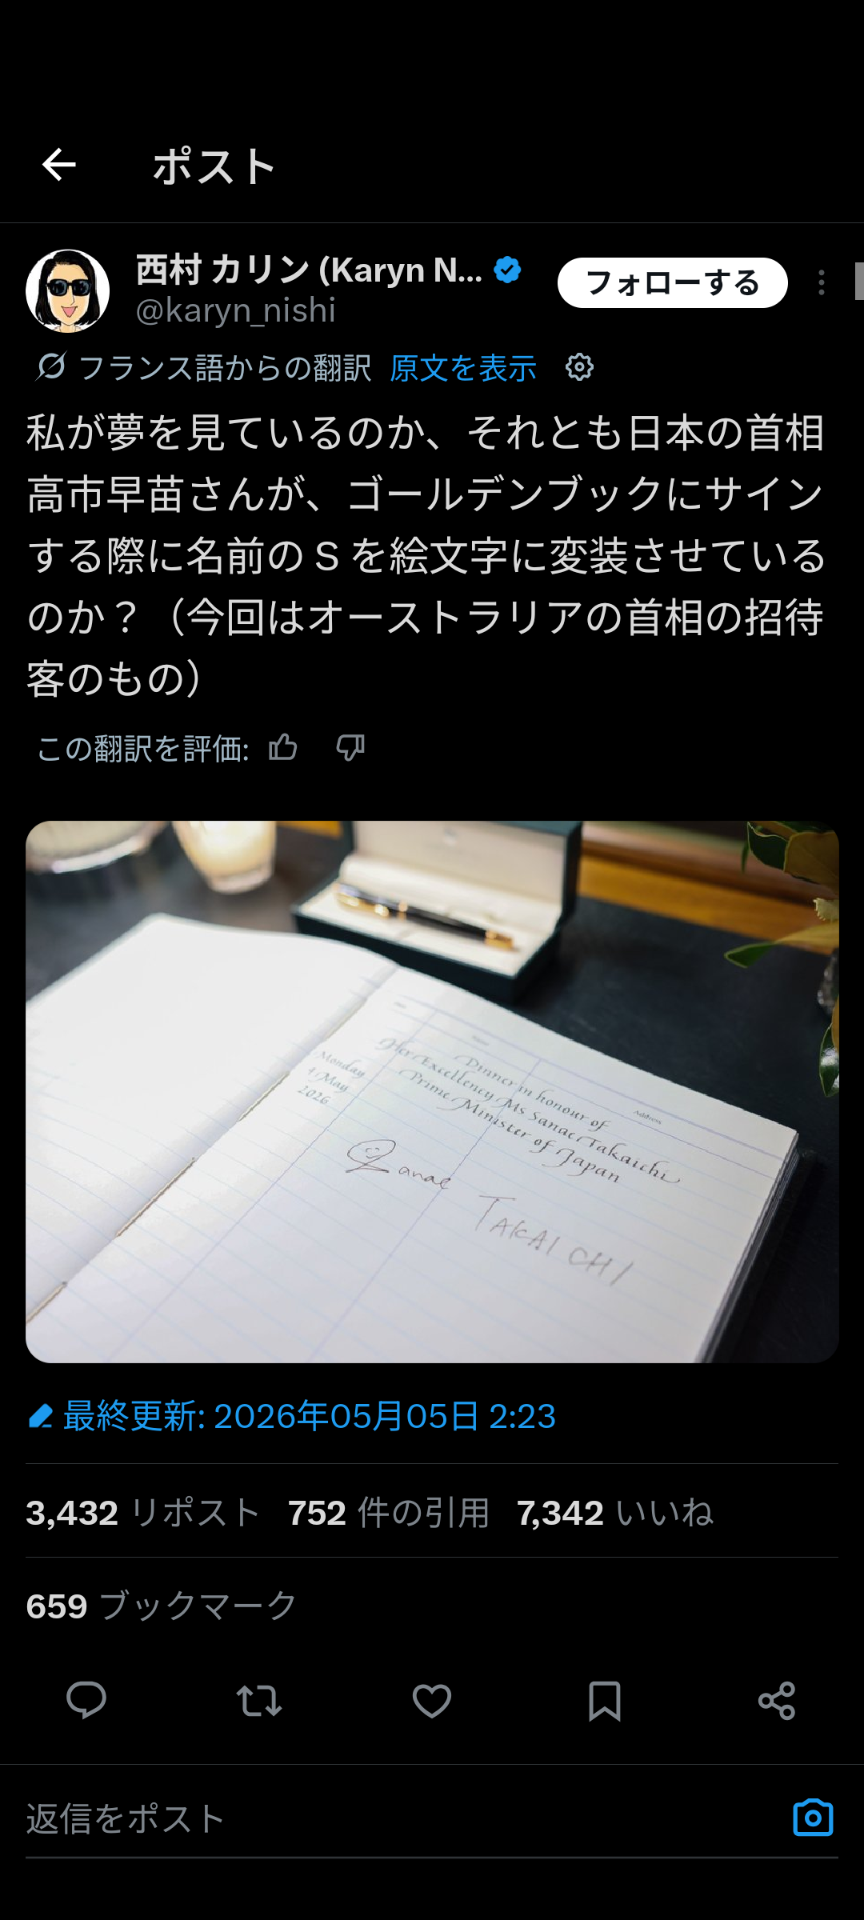 ポスト
西村 カリン (Karyn N...
@karyn_nishi
フォローする
フランス語からの翻訳 原文を表示
私が夢を見ているのか、それとも日本の首相
高市早苗さんが、ゴールデンブックにサイン
する際に名前の S を絵文字に変装させている
のか？（今回はオーストラリアの首相の招待
客のもの）
この翻訳を評価:
Monday
4 May
2026
Address
Dinner in honour of
Her Excellency Ms Sanae Takaichi
Prime Minister of Japan
Sanae
TAKAICHI
最終更新: 2026年05月05日 2:23
3,432 リポスト 752 件の引用 7,342 いいね
659 ブックマーク
返信をポスト